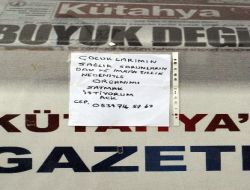 Kütahya
BÜYÜK DEĞİ
ÇOCUKLARIMIN
SAĞLIK SORUNLARIN
DAN VE İMKANSIZLIK
NEDENİYLE
ORGANIMI
SATMAK
İSTİYORUM
ACİL
CEP.
KÜTAHYA'
GAZETE